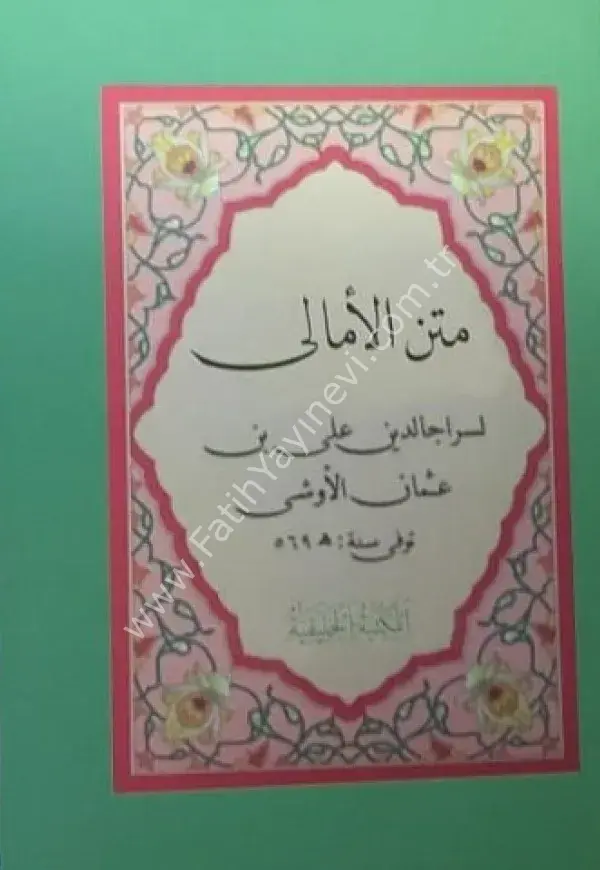 متن الأمالى
لسراجالدين على بن
عثمان الأوشى
توفى سنة: ھ ٥٦٩
المكتبة الحنيفية
www.FatihYayinevi.com.tr